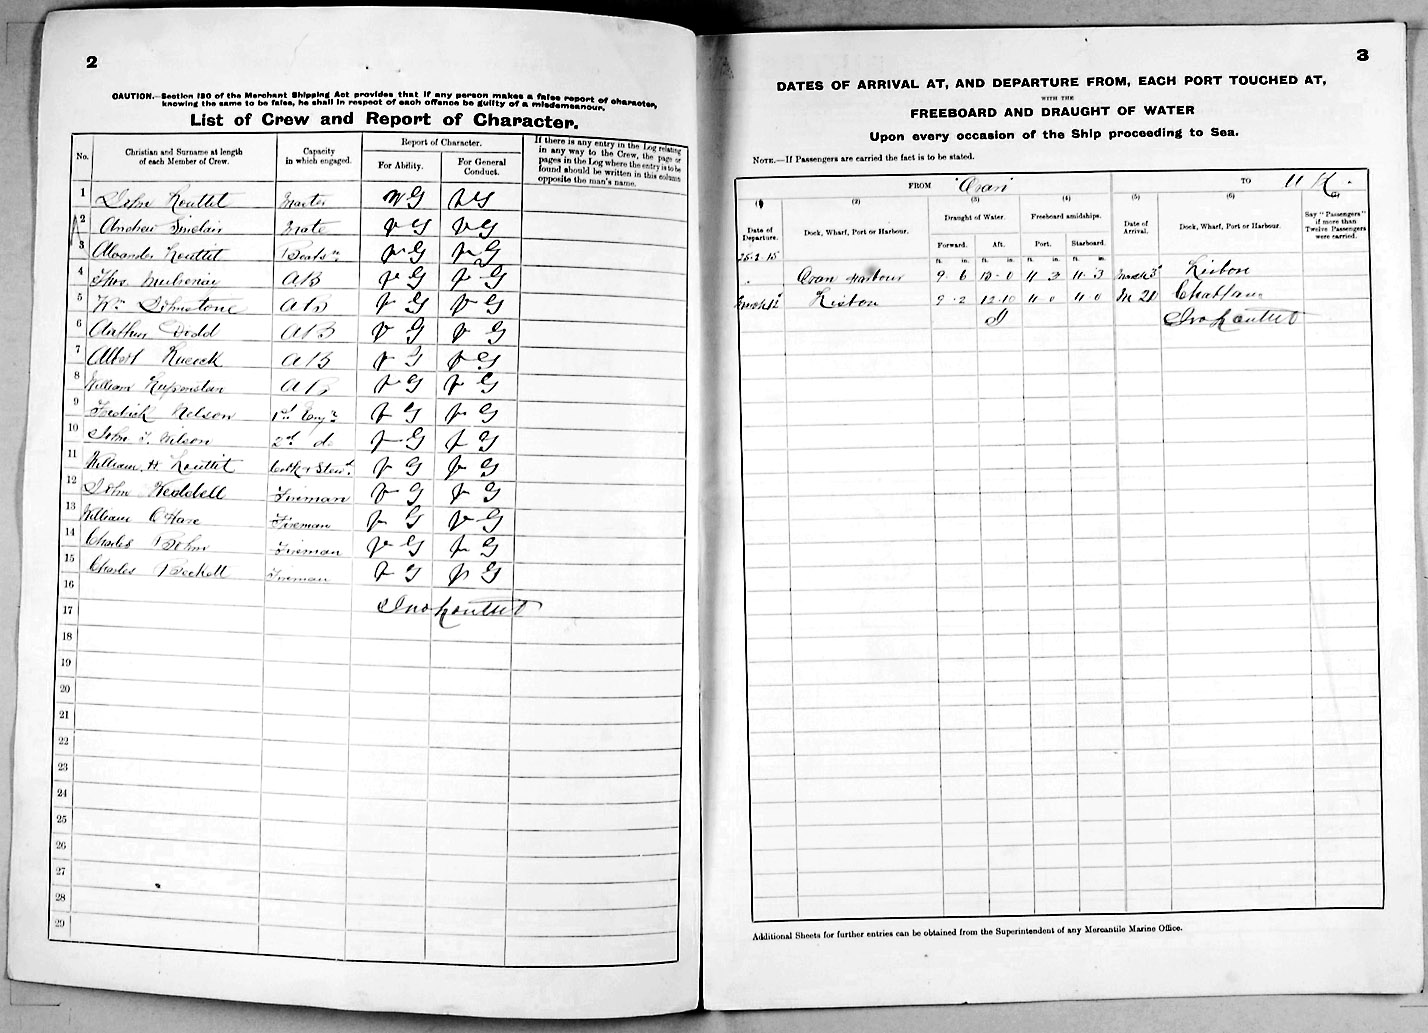 2
CAUTION.—Section 180 of the Merchant Shipping Act provides that if any person makes a false report of character,
knowing the same to be false, he shall in respect of each offence be guilty of a misdemeanour.
List of Crew and Report of Character.
No.
Christian and Surname at length
of each Member of Crew.
Capacity
in which engaged.
Report of Character.
For Ability.
For General
Conduct.
If there is any entry in the Log relating
in any way to the Crew, the page or
pages in the Log where the entry is to be
found should be written in this column
opposite the man's name.
1 John Louttit Master VG VG
2 Andrew Sinclair Mate VG VG
3 Alexander Louttit Boatsn VG VG
4 Thos AB VG VG
5 Wm Johnstone AB VG VG
6 Arthur Dodd AB VG VG
7 Albert AB VG VG
8 William AB VG VG
9 Fredrick Nelson 1st Engr VG VG
10 John T. Wilson 2nd do VG VG
11 William H Louttit Cook & Stewd VG VG
12 John Weddell Fireman VG VG
13 William O'Hare Fireman VG VG
14 Charles Bohm Fireman VG VG
15 Charles Beckett Fireman VG VG
16
17 Jno Louttit
18
19
20
21
22
23
24
25
26
27
28
29
3
DATES OF ARRIVAL AT, AND DEPARTURE FROM, EACH PORT TOUCHED AT,
WITH THE
FREEBOARD AND DRAUGHT OF WATER
Upon every occasion of the Ship proceeding to Sea.
NOTE.—If Passengers are carried the fact is to be stated.
FROM Oran TO U K.
(1) (2) (3) (4) (5) (6) (7)
Date of
Departure.
Dock, Wharf, Port or Harbour.
Draught of Water.
Forward. Aft.
Freeboard amidships.
Port. Starboard.
Date of
Arrival.
Dock, Wharf, Port or Harbour.
Say "Passengers"
if more than
Twelve Passengers
were carried.
ft. in. ft. in. ft. in. ft. in.
25-2-15 Oran Harbour 9 6 13 0 11 3 11 3 March 3d Lisbon
March 12 Lisbon 9 2 12 10 11 0 11 0 Mr 21 Chatham
Jno Louttit
Additional Sheets for further entries can be obtained from the Superintendent of any Mercantile Marine Office.